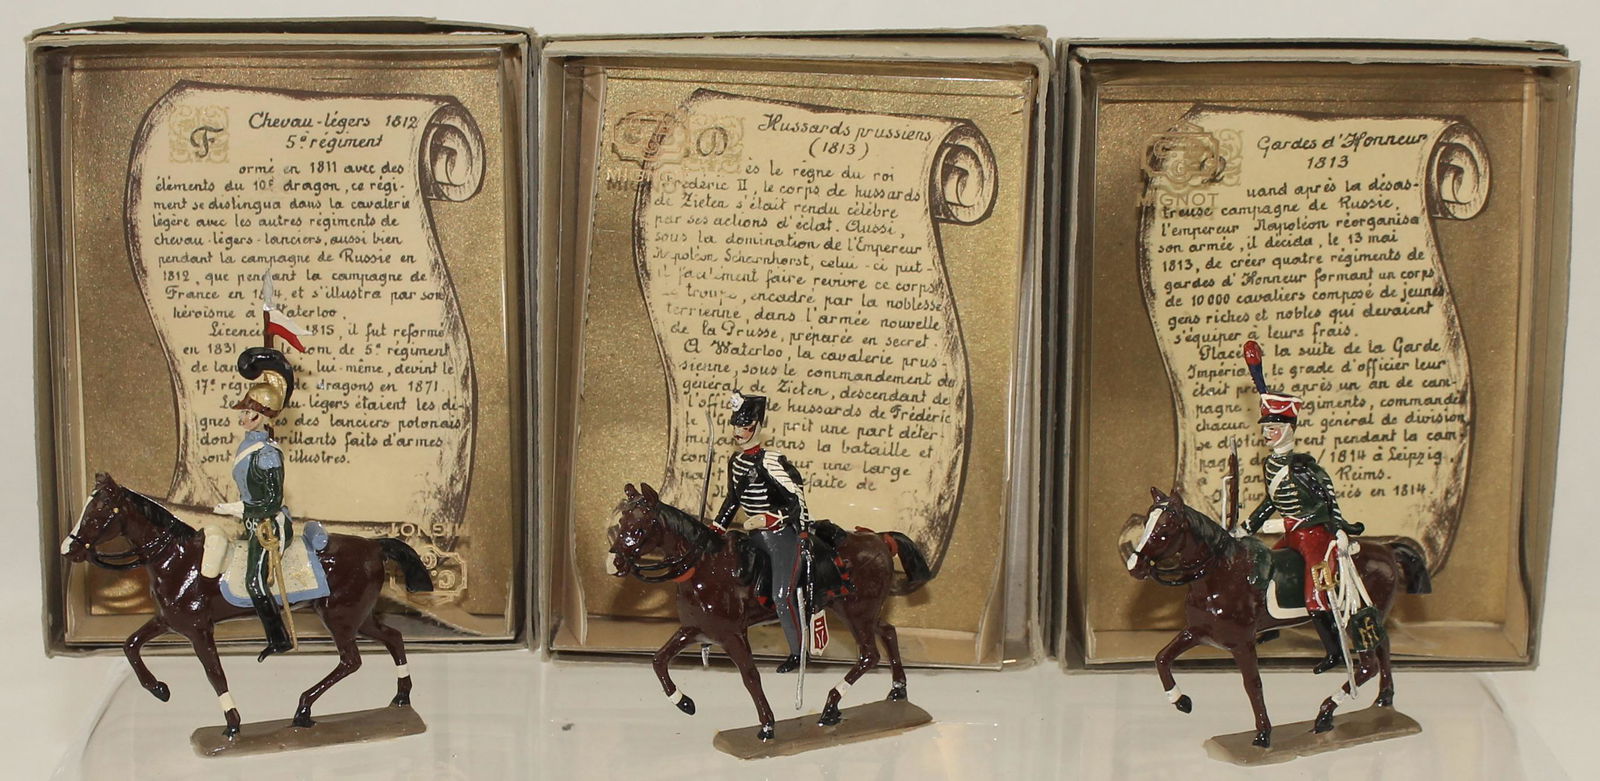 Chevau-légers 1812
5e régiment
F
ormé en 1811 avec des
éléments du 10e dragon, ce régi-
ment se distingua dans la cavalerie
légère avec les autres régiments de
chevau-légers-lanciers, aussi bien
pendant la campagne de Russie en
1812, que pendant la campagne de
France en 1814, et s'illustra par son
héroïsme à Waterloo.
Licencié 1815, il fut reformé
en 1831 le nom de 5e régiment
de lui-même, devint le
17e de dragons en 1871.
légers étaient les di-
gnes des lanciers polonais
dont brillants faits d'armes
sont illustres.
Hussards prussiens
(1813)
D
ès le règne du roi
Frédéric II, le corps de hussards
de Zieten s'était rendu célèbre
par ses actions d'éclat. Aussi,
sous la domination de l'Empereur
Napoléon Scharnhorst, celui-ci put-
il facilement faire revivre ce corps
troupe, encadré par la noblesse
terrienne, dans l'armée nouvelle
de la Prusse, préparée en secret.
A Waterloo, la cavalerie prus-
sienne, sous le commandement du
général de Zieten, descendant de
l'officier de hussards de Frédéric
le prit une part déter-
dans la bataille et
sur une large
défaite de
MIGNOT
Gardes d'Honneur
1813
Q
uand après la désas-
treuse campagne de Russie,
l'empereur Napoléon réorganisa
son armée, il décida, le 13 mai
1813, de créer quatre régiments de
gardes d'Honneur formant un corps
de 10000 cavaliers composé de jeunes
gens riches et nobles qui devaient
s'équiper à leurs frais.
Placés à la suite de la Garde
Impériale le grade d'officier leur
était promis après un an de cam-
pagne. régiments, commandés
chacun un général de division
se distinguèrent pendant la cam-
pagne 1814 à Leipzig,
Reims.
en 1814.
MIGNOT